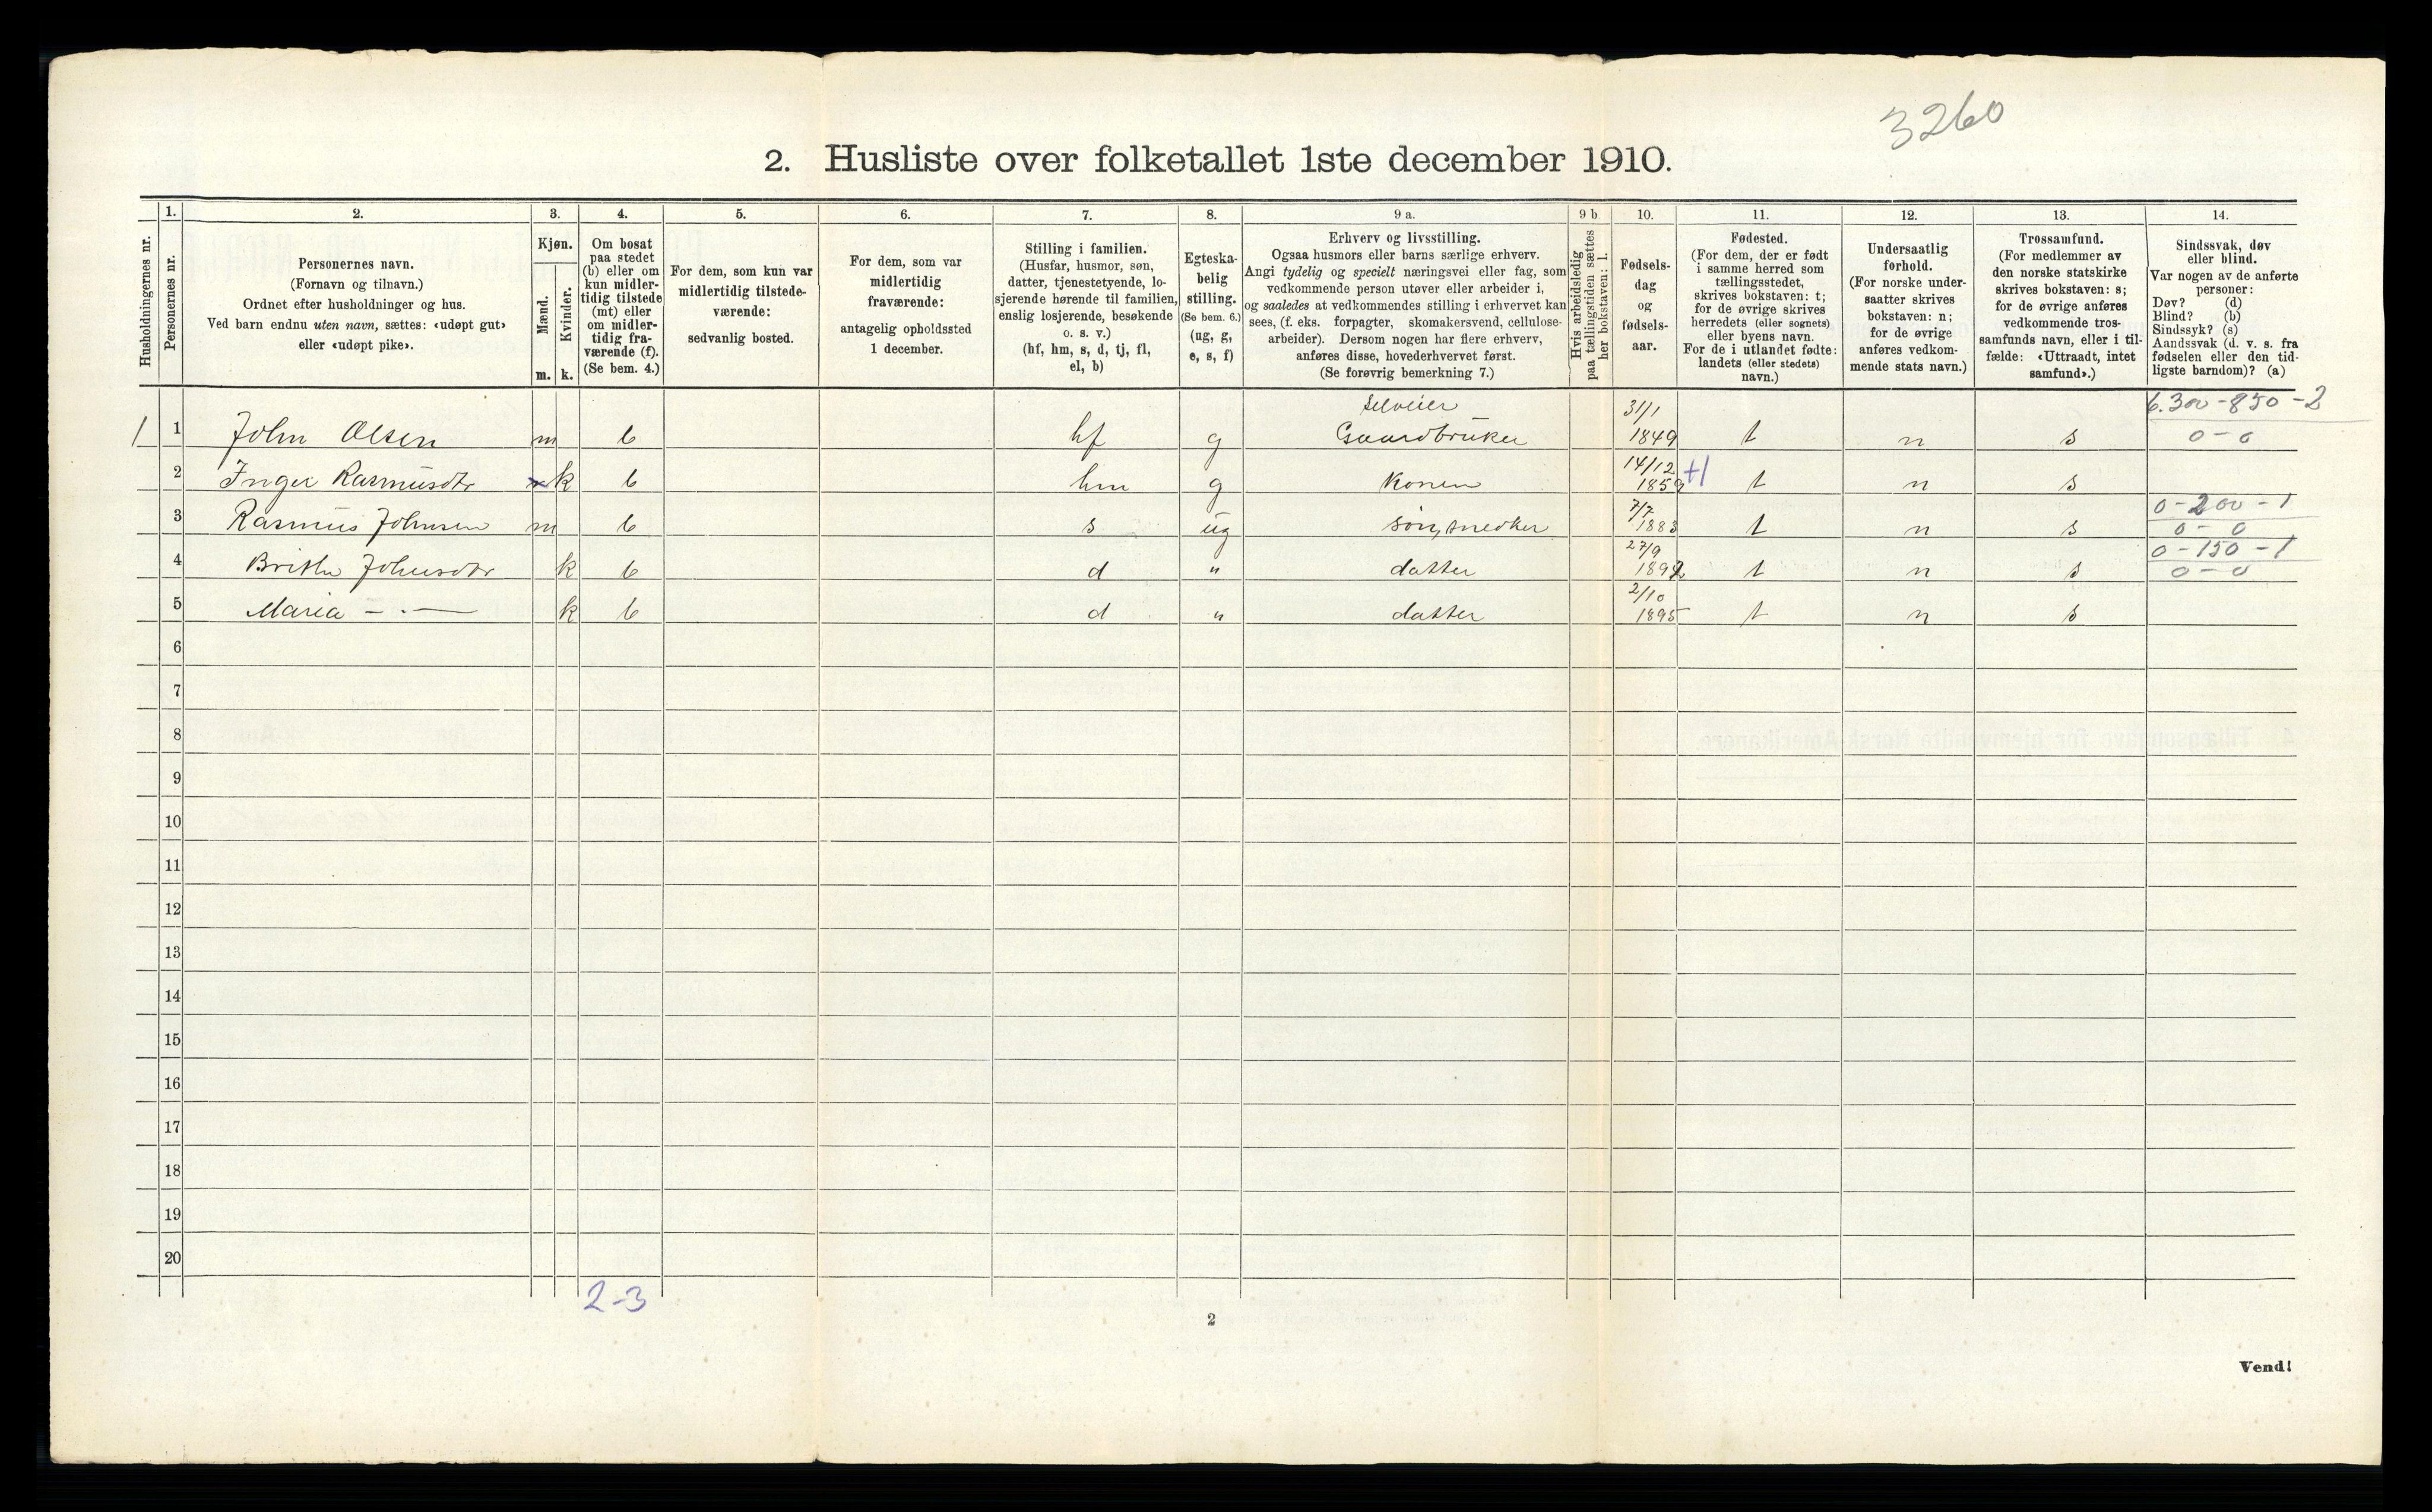 3260
2. Husliste over folketallet 1ste december 1910.
Husholdningernes nr.
1.
Personernes nr.
2.
Personernes navn.
(Fornavn og tilnavn.)
Ordnet efter husholdninger og hus.
Ved barn endnu uten navn, sættes: «udøpt gut»
eller «udøpt pike».
3.
Kjøn.
Mænd.
Kvinder.
m. k.
4.
Om bosat
paa stedet
(b) eller om
kun midler-
tidig tilstede
(mt) eller
om midler-
tidig fra-
værende (f).
(Se bem. 4.)
5.
For dem, som kun var
midlertidig tilstede-
værende:
sedvanlig bosted.
6.
For dem, som var
midlertidig
fraværende:
antagelig opholdssted
1 december.
7.
Stilling i familien.
(Husfar, husmor, søn,
datter, tjenestetyende, lo-
sjerende hørende til familien,
enslig losjerende, besøkende
o. s. v.)
(hf, hm, s, d, tj, fl,
el, b)
8.
Egteska-
belig
stilling.
(Se bem. 6.)
(ug, g,
e, s, f)
9 a.
Erhverv og livsstilling.
Ogsaa husmors eller barns særlige erhverv.
Angi tydelig og specielt næringsvei eller fag, som
vedkommende person utøver eller arbeider i,
og saaledes at vedkommendes stilling i erhvervet kan
sees, (f. eks. forpagter, skomakersvend, cellulose-
arbeider). Dersom nogen har flere erhverv,
anføres disse, hovederhvervet først.
(Se forøvrig bemerkning 7.)
9 b
Hvis arbeidsledig
paa tællingstiden sættes
her bokstaven: l.
10.
Fødsels-
dag
og
fødsels-
aar.
11.
Fødested.
(For dem, der er født
i samme herred som
tællingsstedet,
skrives bokstaven: t;
for de øvrige skrives
herredets (eller sognets)
eller byens navn.
For de i utlandet fødte:
landets (eller stedets)
navn.)
12.
Undersaatlig
forhold.
(For norske under-
saatter skrives
bokstaven: n;
for de øvrige
anføres vedkom-
mende stats navn.)
13.
Trossamfund.
(For medlemmer av
den norske statskirke
skrives bokstaven: s;
for de øvrige anføres
vedkommende tros-
samfunds navn, eller i til-
fælde: «Uttraadt, intet
samfund».)
14.
Sindssvak, døv
eller blind.
Var nogen av de anførte
personer:
Døv? (d)
Blind? (b)
Sindssyk? (s)
Aandssvak (d. v. s. fra
fødselen eller den tid-
ligste barndom)? (a)
selveier 31/1 6.300-850-2
1 1 John Olsen m b hf g Gaardbruker 1849 t n s 0-0
14/12 +1
2 Inger Rasmusdtr k b hm g Konen 1859 t n s
7/7 0-200-1
3 Rasmus Johnsen m b s ug søn, snedker 1883 t n s 0-0
27/9 0-150-1
4 Britha Johnsdtr k b d " datter 1892 t n s 0-0
2/10
5 Maria -·- k b d " datter 1895 t n s
6
7
8
9
10
11
12
13
14
15
16
17
18
19
20
2-3
2
Vend!